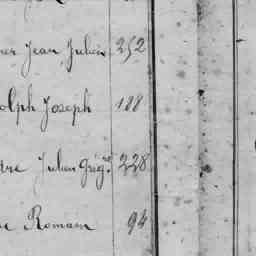 ner Jean Julien 252
olph Joseph 188
Julien Grég. 228
Romain 94